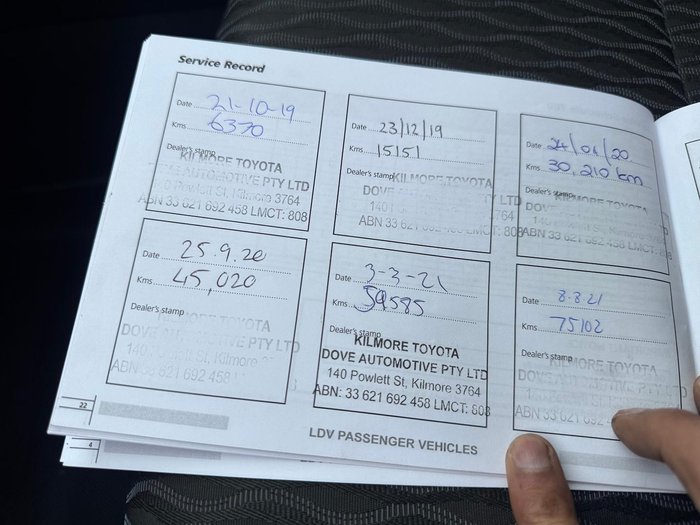 Service Record
Date 21-10-19
Kms 6370
Dealer's stamp
KILMORE TOYOTA
AUTOMOTIVE PTY LTD
Powlett St, Kilmore 3764
ABN 33 621 692 458 LMCT: 808
Date 23/12/19
Kms 15151
Dealer's stamp
KILMORE TOYOTA
DOVE
140 764
ABN 33 621 692 458 LMCT: 808
Date 24/04/20
Kms 30,210 km
Dealer's stamp
KILMORE TOYOTA
DOVE
ABN 33 621 692 458 LMCT:
Date 25.9.20
Kms 45,020
Dealer's stamp
TOYOTA
DOVE AUTOMOTIVE PTY LTD
140 St, Kilmore
ABN 33 621 692 458
Date 3-3-21
Kms 59585
Dealer's stamp
KILMORE TOYOTA
DOVE AUTOMOTIVE PTY LTD
140 Powlett St, Kilmore 3764
ABN: 33 621 692 458 LMCT: 808
Date 8.8.21
Kms 75102
Dealer's stamp
KILMORE TOYOTA
PTY LTD
ABN 33 621 692
22
LDV PASSENGER VEHICLES
4